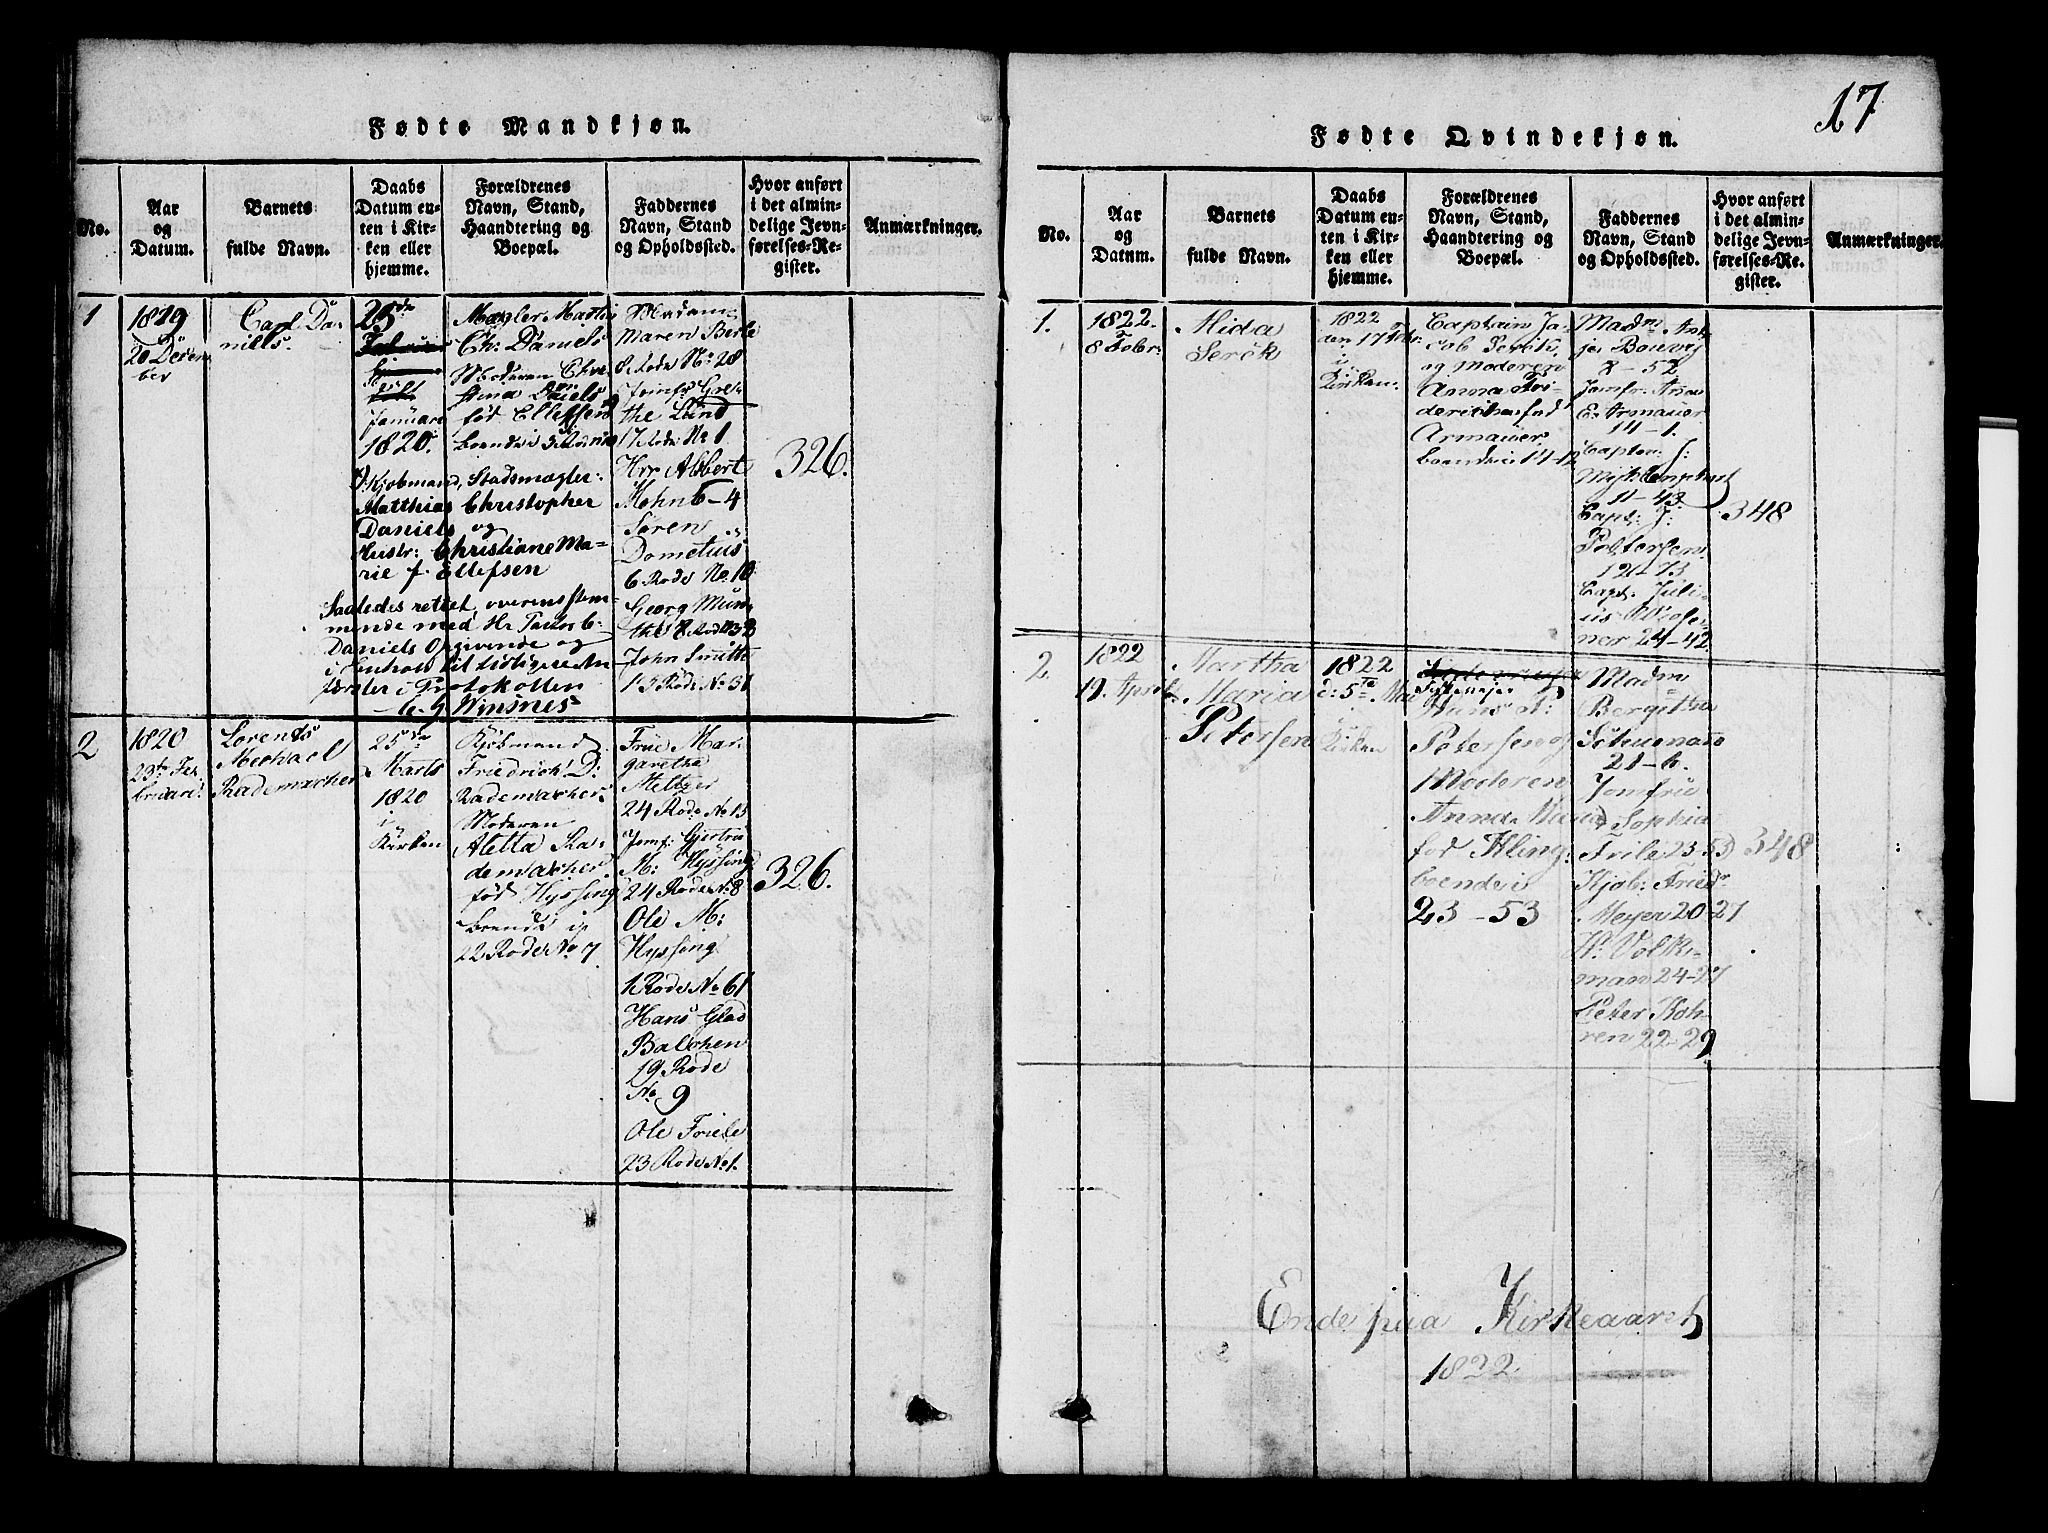 Fødte Mandkjøn.
No.
Aar
og
Datum.
Barnets
fulde Navn.
Daabs
Datum en-
ten i Kir-
ken eller
hjemme.
Forældrenes
Navn, Stand,
Haandtering og
Boepæl.
Faddernes
Navn, Stand
og Opholdssted.
Hvor anført
i det almin-
delige Jevn-
førelses-Re-
gister.
Anmærkninger.
1
1819
20 Decem
ber
Carl Da-
niels.
25de
Januari
1820.
Mægler Martin
Ch: Daniels
Moderen Chri
stina Daniels
fød Ellefsen
boende i 3 Rode No
Kjøbmand, Stadsmægler:
Matthias Christopher
Daniels og
Hustr: Christiane Ma-
rie f. Ellefsen
Saaledes rettet, overensstem-
mende med Hr
Daniels Opgivende og
i Henhold til tidligere An
førsler i Protokollen
Winsnes
Madam
Maren Berle
8 Rode No: 28
Jomfr Gre-
the Lund
17 Rode No 1
Hrr Albert
Mohn 6-4
Søren
Dometius
6 Rode No. 10
Georg Mün
the 8 Rode No 32
John Smitt
15 Rode No 31
326.
2
1820
23de Fe-
bruari
Lorents
Michael
Rademacher
25de
Marts
1820
i
Kirken
Kjøbmand
Friedrich D:
Rademacher
Moderen
Aletta Ra-
demacher
fød Hyssing
boende i
22 Rode No 7
Frue Mar-
garetha
Meltzer
24 Rode No 15
Jomf: Gjertru
M: Hyssing
24 Rode No 8
Ole M:
Hyssing
1 Rode No 61
Hans Glad
Balchen
19 Rode
No 9
Ole Friele
23 Rode No 1.
326.
17
Fødte Qvindekjøn.
No.
Aar
og
Datum.
Barnets
fulde Navn.
Daabs
Datum en-
ten i Kir-
ken eller
hjemme.
Forældrenes
Navn, Stand,
Haandtering og
Boepæl.
Faddernes
Navn, Stand
og Opholdssted.
Hvor anført
i det almin-
delige Jevn-
førelses-Re-
gister.
Anmærkninger.
1.
1822.
8 Febr:
Alida
Serck
1822
den 17 Febr.
i
Kirken
Captain Ja-
cob Serck,
og Moderen
Anna Fri-
derichen fød
Armauer
boende i 14-12
Madm
8-52
Jomfr. Ana
E. Armauer
14-1.
Capten J:
11-43
Capt: J:
Petersen
12-73
Capt. Juli-
us Wiese-
ner 24-42
348
2.
1822
19. April
Martha
Maria
Petersen
1822
d: 5te Mai
i
Kirken
Hans P:
Petersen og
Moderen
Anna Maria
fød Kling:
boende i
23-53
Madm
Bergitha
21-6.
Jomfrue
Sophia
Friile 23-53
Kjøb: Friedr
Meyer 20-27
Hr Volk-
man 24-27
Peter Koh-
ren 22-29
348
Ende paa Kirkeaaret
1822.